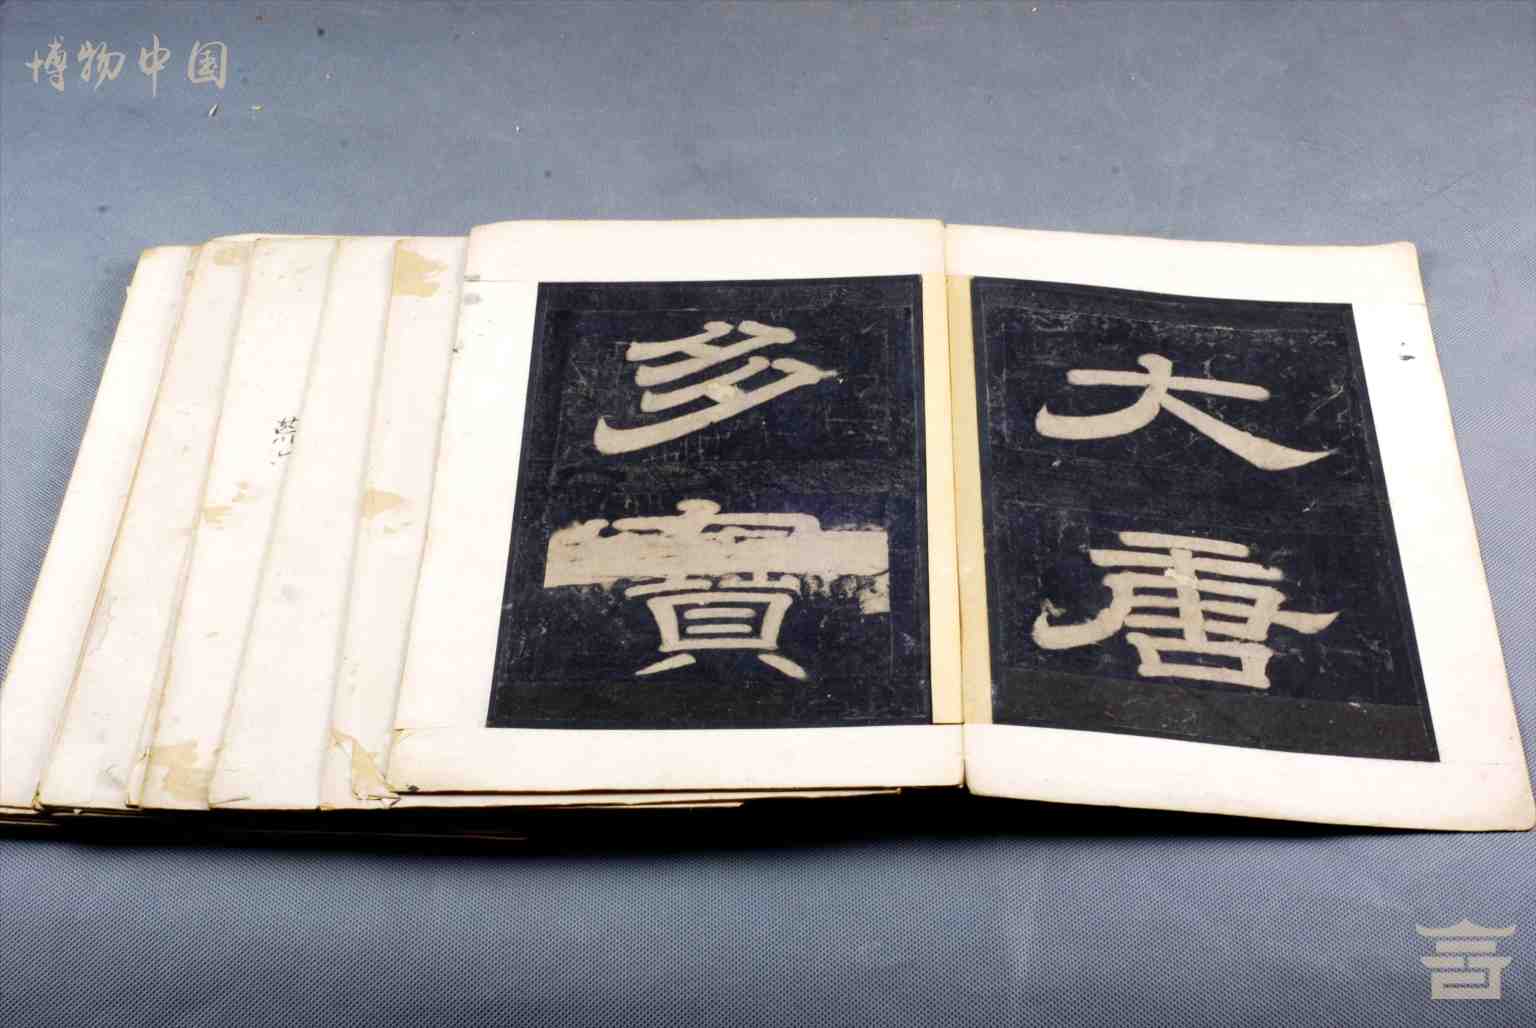 博物中国
大唐
多寶